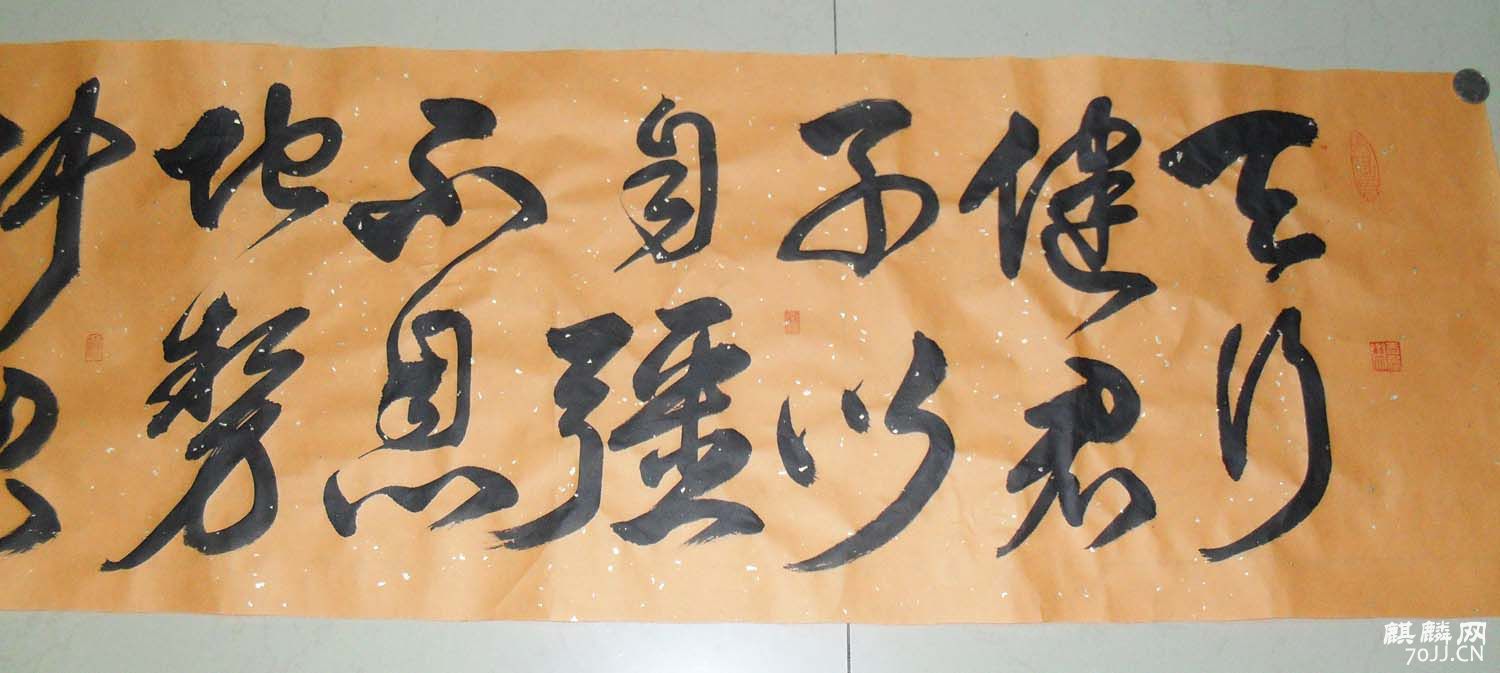 天行
健君
子以
自彊
不息
地勢
麒麟网
70JJ.CN